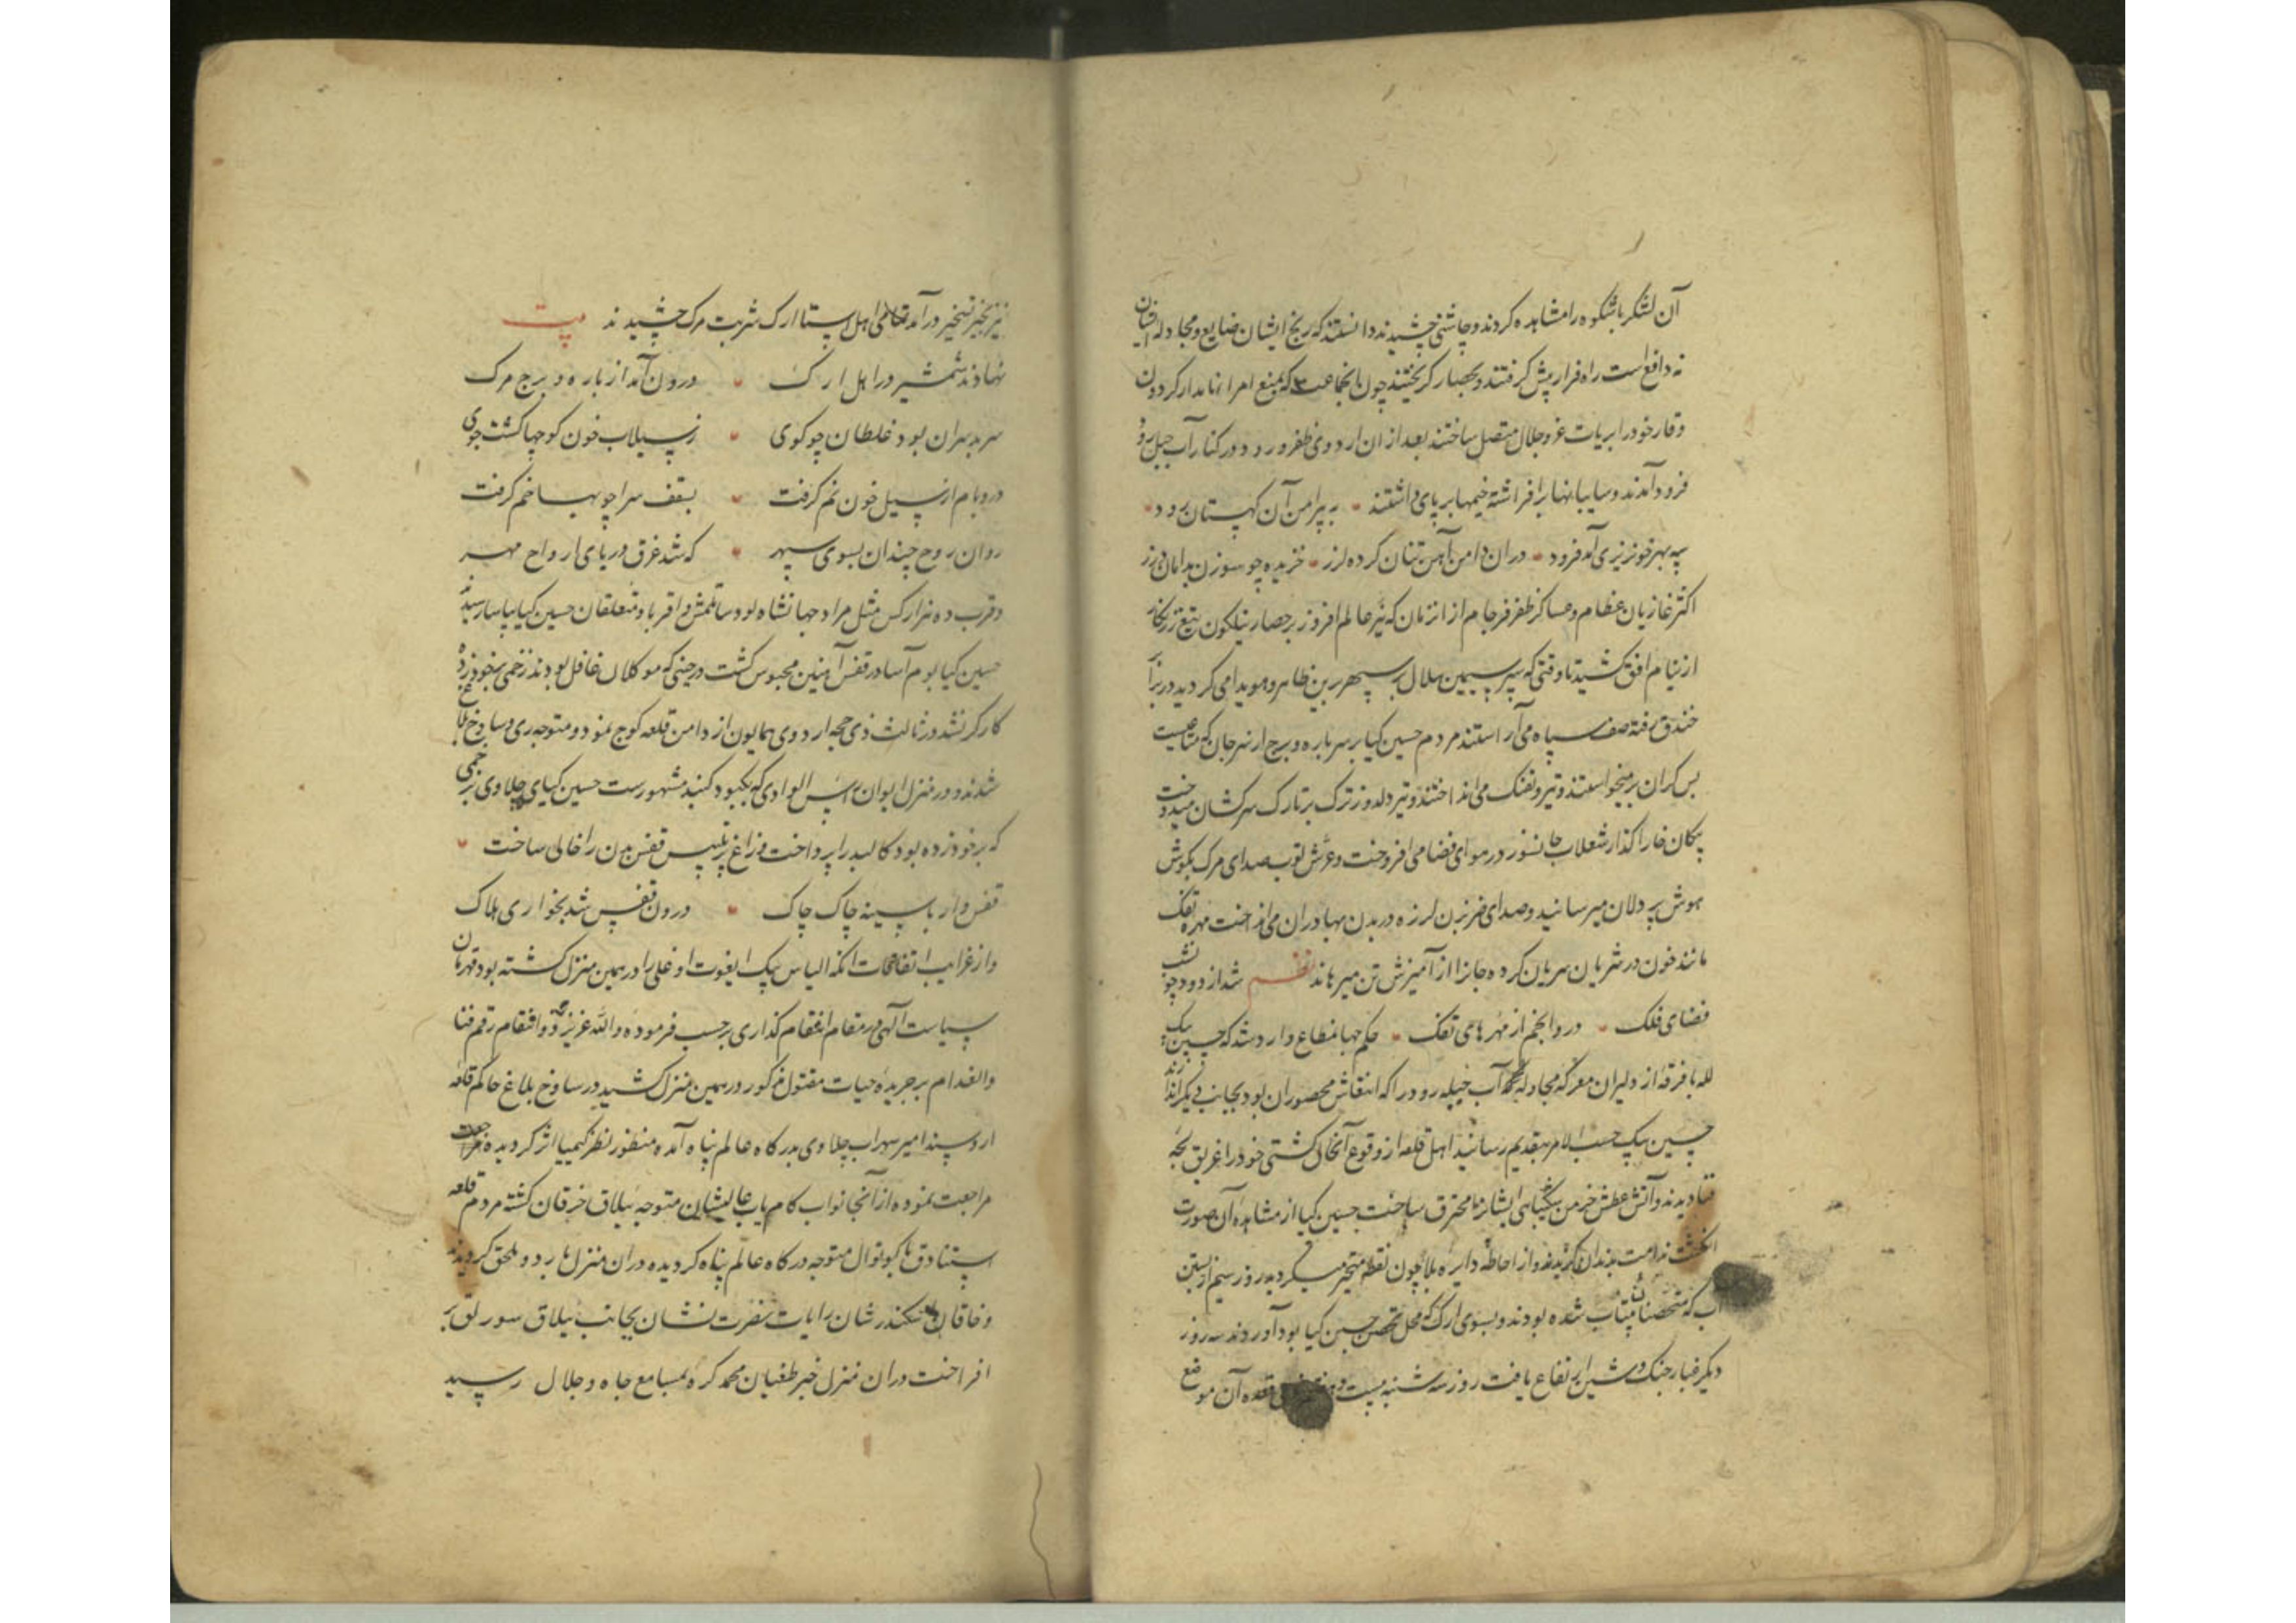 آن لشکر باشکوه را مشاهده کردند و چاشنی چشیدند دانستند که رنج ایشان ضایع و مجادله ایشان
نه دافع است راه فرار پیش کرفتند و بحصار کریختند چون بانجماعت که بمنع امرا نامدار کردون
وقار خود را برایات عز و جلال متصل ساختند بعد از ان اردوی ظفر ورود در کنار آب حبل رود
فرود آمدند و سایبانها برافراشته خیمها بر پای داشتند به پیرامن آن کهستان رود
پی بهر خونریزی آمد فرود دران دامن آهن تنان کرده لرز خزیده چو سوزن بدامان درز
اکثر غازیان عظام و عساکر ظفر فرجام از انزمان که نیر عالم افروز بر حصار نیلکون تیغ زرنکار
از نیام افق کشید تا وقتی که سپر سیمین هلال بر سپهر برین ظاهر و هویدا می کردید در برابر
خندق رفته صف سپاه می آراستند مردم حسین کیا بر سر باره و برج از سر جان که متاعیست
بس کران برمیخواستند و تیر و تفنک می انداختند و تیر دلدوز ترک بر تارک سرکشان میدوخت
پیکان خارا کذار شعله جانسوز در هوای فضا می افروخت و غرش توپ صدای مرک بکوش
هوش پردلان میرسانید و صدای ضربزن لرزه در بدن بهادران می انداخت مهره تفک
مانند خون در شریان سریان کرده جانرا از آمیزش تن میرهاند نظم شد از دود چون شب
فضای فلک درو انجم از مهرهای تفک حکم جهانمطاع وارد شد که حسین بیک
لله با فرقه از دلیران معرکه مجادله آب حبله رود را که انتقاش محصوران بود بجانب دیکر اندازند
حسین بیک حسب الامر بتقدیم رسانید اهل قلعه از وقوع آنحال کشتی خود را غریق لجه
فنا دیدند و آتش عطش خرمن شکیبایی ایشانرا محترق ساخت حسین کیا از مشاهده آن صورت
انکشت ندامت بدندان کزیدند و از احاطه دایره بلا چون نقطه متحیر میکردید روز سیم از بستن
آب که متحصنان بیتاب شده بودند و بسوی ارک که محل تحصن حسین کیا بود آوردند سه روز
دیکر غبار جنک و شین ارتفاع یافت روز سه شنبه بیست و قعده آن موضع
نیز بحیز تسخیر درآمد تمامی اهل استا ارک شربت مرک چشیدند بیت
نهادند شمشیر در اهل ارک درون آمد از باره و برج مرک
سر سران بود غلطان چو کوی ز سیلاب خون کوچها کشت جوی
در و بام از سیل خون نم کرفت بسقف سرا چوبها خم کرفت
روان روح چندان بسوی سپهر که شد غرق دریای ارواح مهر
و قرب ده هزار کس مثل مراد جهانشاهلو و ساتلمش و اقربا و متعلقان حسین کیا بیاسا رسیدند
حسین کیا بوم آسا در قفس آهنین محبوس کشت در حینی که موکلان غافل بودند زخمی بخود زده
کارکر نشد در ثالث ذی حجه اردوی همایون از دامن قلعه کوچ نمود و متوجه ری و ساوخ بلاغ
شدند و در منزل ایوان راس الوادی که بکبود کنبد مشهورست حسین کیای چلاوی بزخمی
که بر خود زده بود کالبد را پرداخت و زاغ پر تلبیس قفس بدن را خالی ساخت
قفس وار با سینه چاک چاک درون قفس شد بخواری هلاک
و از غرایب اتفاقات انکه الیاس بیک ایغوت اوغلی را در همین منزل کشته بود قهرمان
سیاست آلهی در مقام انتقام کذاری بر حسب فرموده والله عزیز ذو انتقام رقم فنا
و انعدام بر جریده حیات مقتول مذکور در همین منزل کشید در ساوخ بلاغ حاکم قلعه
اروسپند امیر سهراب چلاوی بدرکاه عالم پناه آمده منظور نظر کیمیا اثر کردیده مراجعت
مراجعت نموده از آنجا نواب کامیاب عالیشان متوجه ییلاق خرقان کشته مردم قلعه
استناوق با کوتوال متوجه درکاه عالم پناه کردیده دران منزل باردو ملحق کردیدند
و خاقان سکندر شان رایات نصرت نشان بجانب ییلاق سورلق بر
افراخت دران منزل خبر طغیان محمد کره بمسامع جاه و جلال رسید